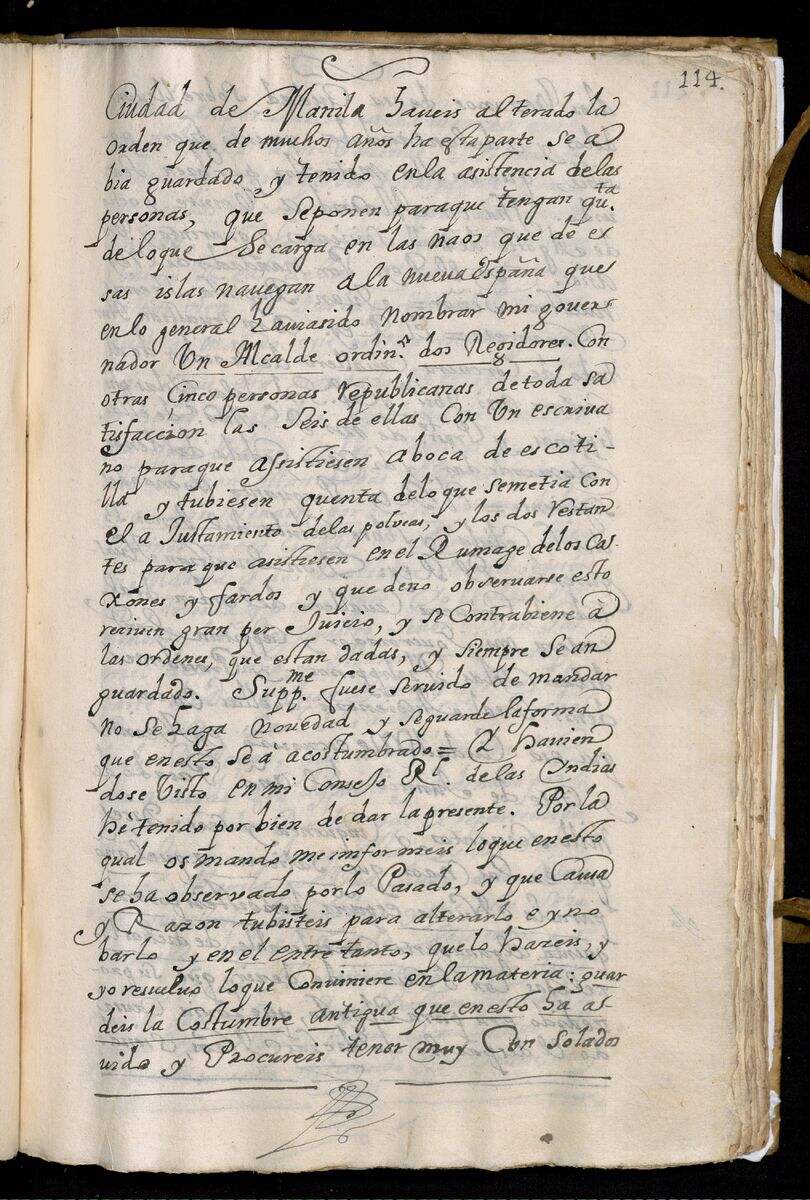 114.
Ciudad de Manila haveis alterado la
orden que de muchos años ha esta parte se a
bia guardado, y tenido en la asistencia de las
personas, que se ponen para que tengan qu.ta
de lo que se carga en las naos que de es
sas islas navegan a la nueva España que
en lo general haviasido nombrar mi gover
nador Un Alcalde ordin.º dos Regidores. Con
otras Cinco personas republicanas de toda sa
tisfaccion las seis de ellas Con Un escriva
no para que assistiesen a boca de escoti-
lla y tubiesen quenta de lo que se metia con
el a Justamiento de las polvcas, y los dos restan
tes para que asistiesen en el Rumage de los Ca-
xones y fardos y que de no observarse esto
reciven gran per Juicio, y se Contrabiene à
las ordenes, que estan dadas, y siempre se an
guardado. Supp.me fuese servido de mandar
no se haga novedad y se guarde la forma
que en esto se à acostumbrado = Y havien
dose Visto en mi Consejo Rl. de las Yndias
hè tenido por bien de dar la presente. Por la
qual os mando me informeis lo que en esto
se ha observado por lo Pasado, y que Causa
y Razon tubisteis para alterarlo e yno
barlo y en el entre tanto, que lo hazeis, y
yo resuelvo lo que Conviniere en la materia: guar
deis la Costumbre antigua que en esto ha as-
vido y Procureis tener muy Con solados